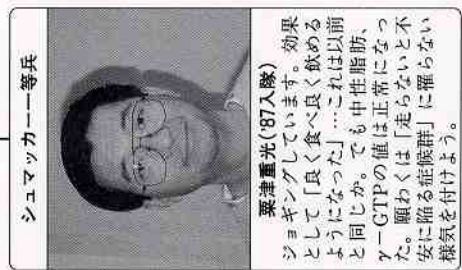 シュマッカー一等兵
粟津重光('87入隊)
ジョギングしています。効果
として「良く食べ良く飲める
ようになった」…これは以前
と同じか。でも中性脂肪、
γ−GTPの値は正常になっ
た。願わくは「走らないと不
安に陥る症候群」に罹らない
様気を付けよう。